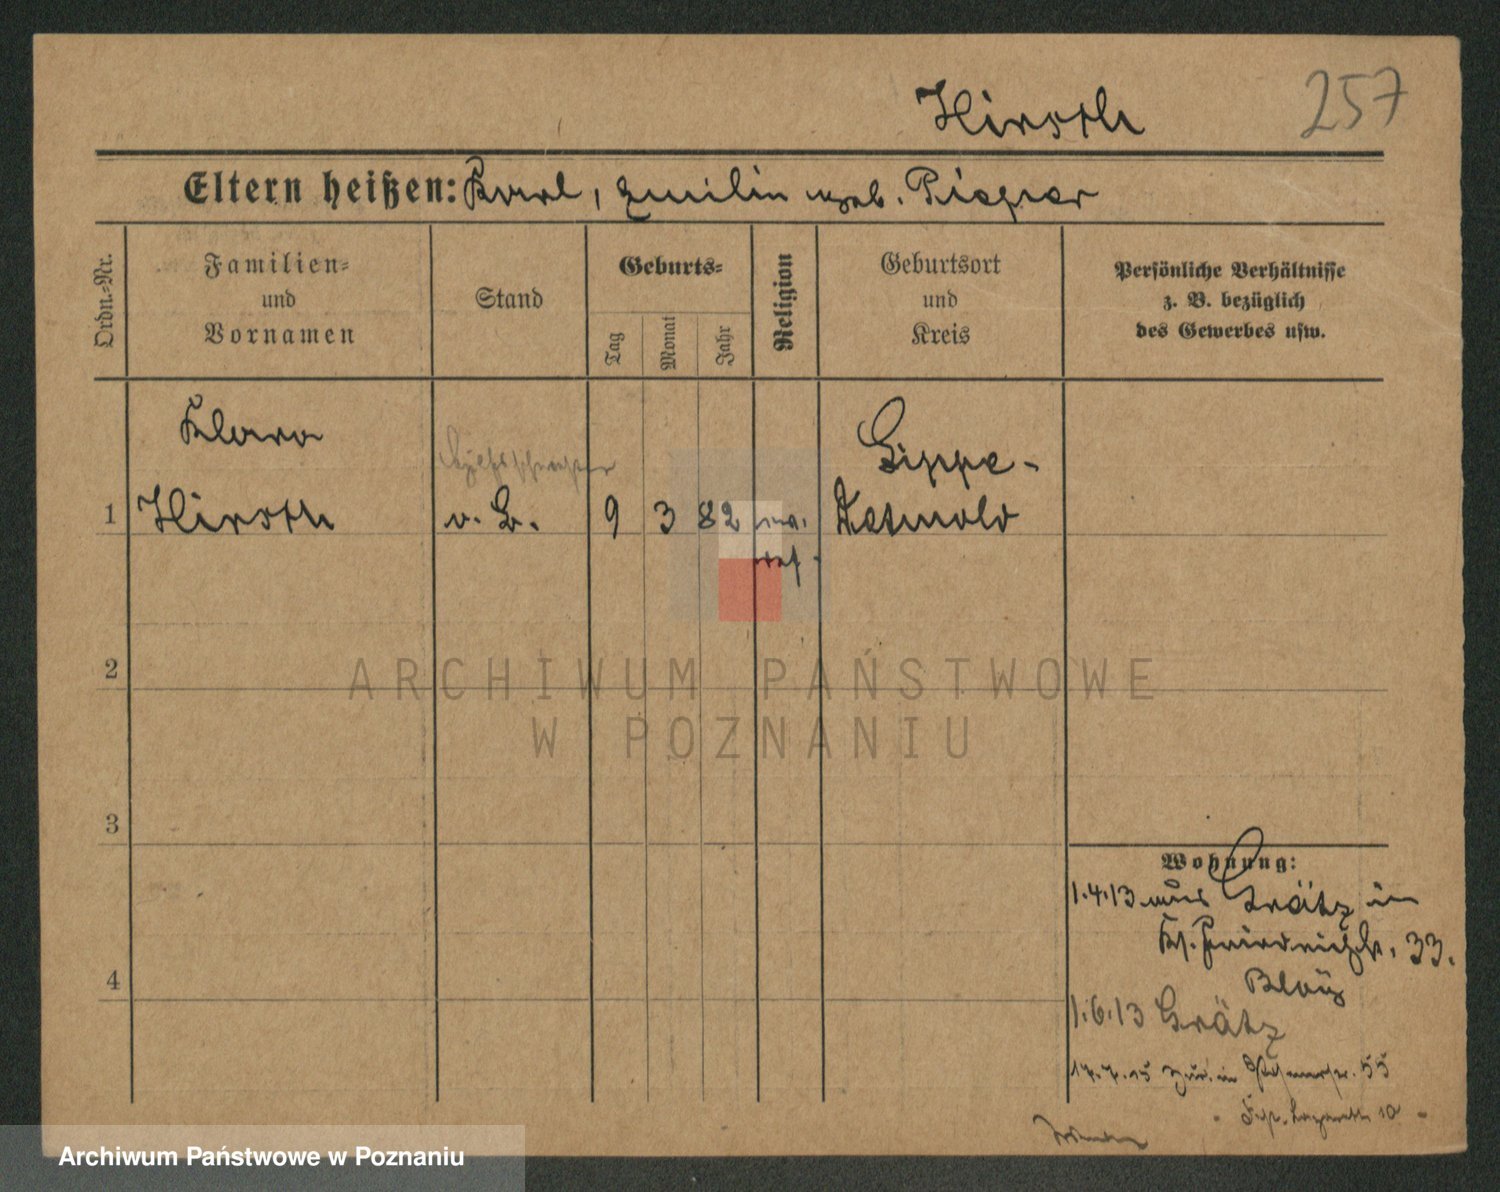 257
Hirsch
Eltern heißen: Karl, Emilie geb. Piesper
Ordn.-Nr.
Familien-
und
Vornamen
Stand
Geburts-
Tag
Monat
Jahr
Religion
Geburtsort
und
Kreis
Persönliche Verhältnisse
z. B. bezüglich
des Gewerbes usw.
Klara
Lippe-
1 Hirsch v. B. 9 3 82 Detmold
ref.
2
3
4
Wohnung:
1.4.13 aus Grätz in
33.
1.6.13 Grätz
17.7.15 zur. in 55
Lazarett 10
ARCHIWUM PAŃSTWOWE
W POZNANIU
Archiwum Państwowe w Poznaniu